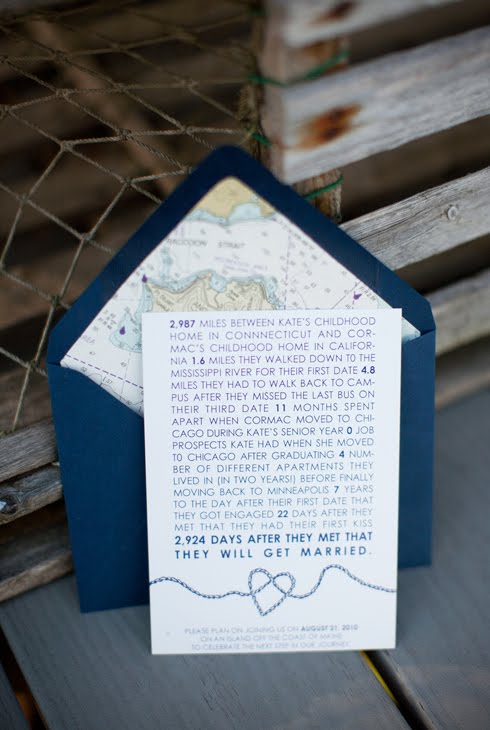 RACCOON STRAIT
2,987 MILES BETWEEN KATE'S CHILDHOOD
HOME IN CONNNECTICUT AND COR-
MAC'S CHILDHOOD HOME IN CALIFOR-
NIA 1.6 MILES THEY WALKED DOWN TO THE
MISSISSIPPI RIVER FOR THEIR FIRST DATE 4.8
MILES THEY HAD TO WALK BACK TO CAM-
PUS AFTER THEY MISSED THE LAST BUS ON
THEIR THIRD DATE 11 MONTHS SPENT
APART WHEN CORMAC MOVED TO CHI-
CAGO DURING KATE'S SENIOR YEAR 0 JOB
PROSPECTS KATE HAD WHEN SHE MOVED
TO CHICAGO AFTER GRADUATING 4 NUM-
BER OF DIFFERENT APARTMENTS THEY
LIVED IN (IN TWO YEARS!) BEFORE FINALLY
MOVING BACK TO MINNEAPOLIS 7 YEARS
TO THE DAY AFTER THEIR FIRST DATE THAT
THEY GOT ENGAGED 22 DAYS AFTER THEY
MET THAT THEY HAD THEIR FIRST KISS
2,924 DAYS AFTER THEY MET THAT
THEY WILL GET MARRIED.
PLEASE PLAN ON JOINING US ON AUGUST 21, 2010
ON AN ISLAND OFF THE COAST OF MAINE
TO CELEBRATE THE NEXT STEP IN OUR JOURNEY